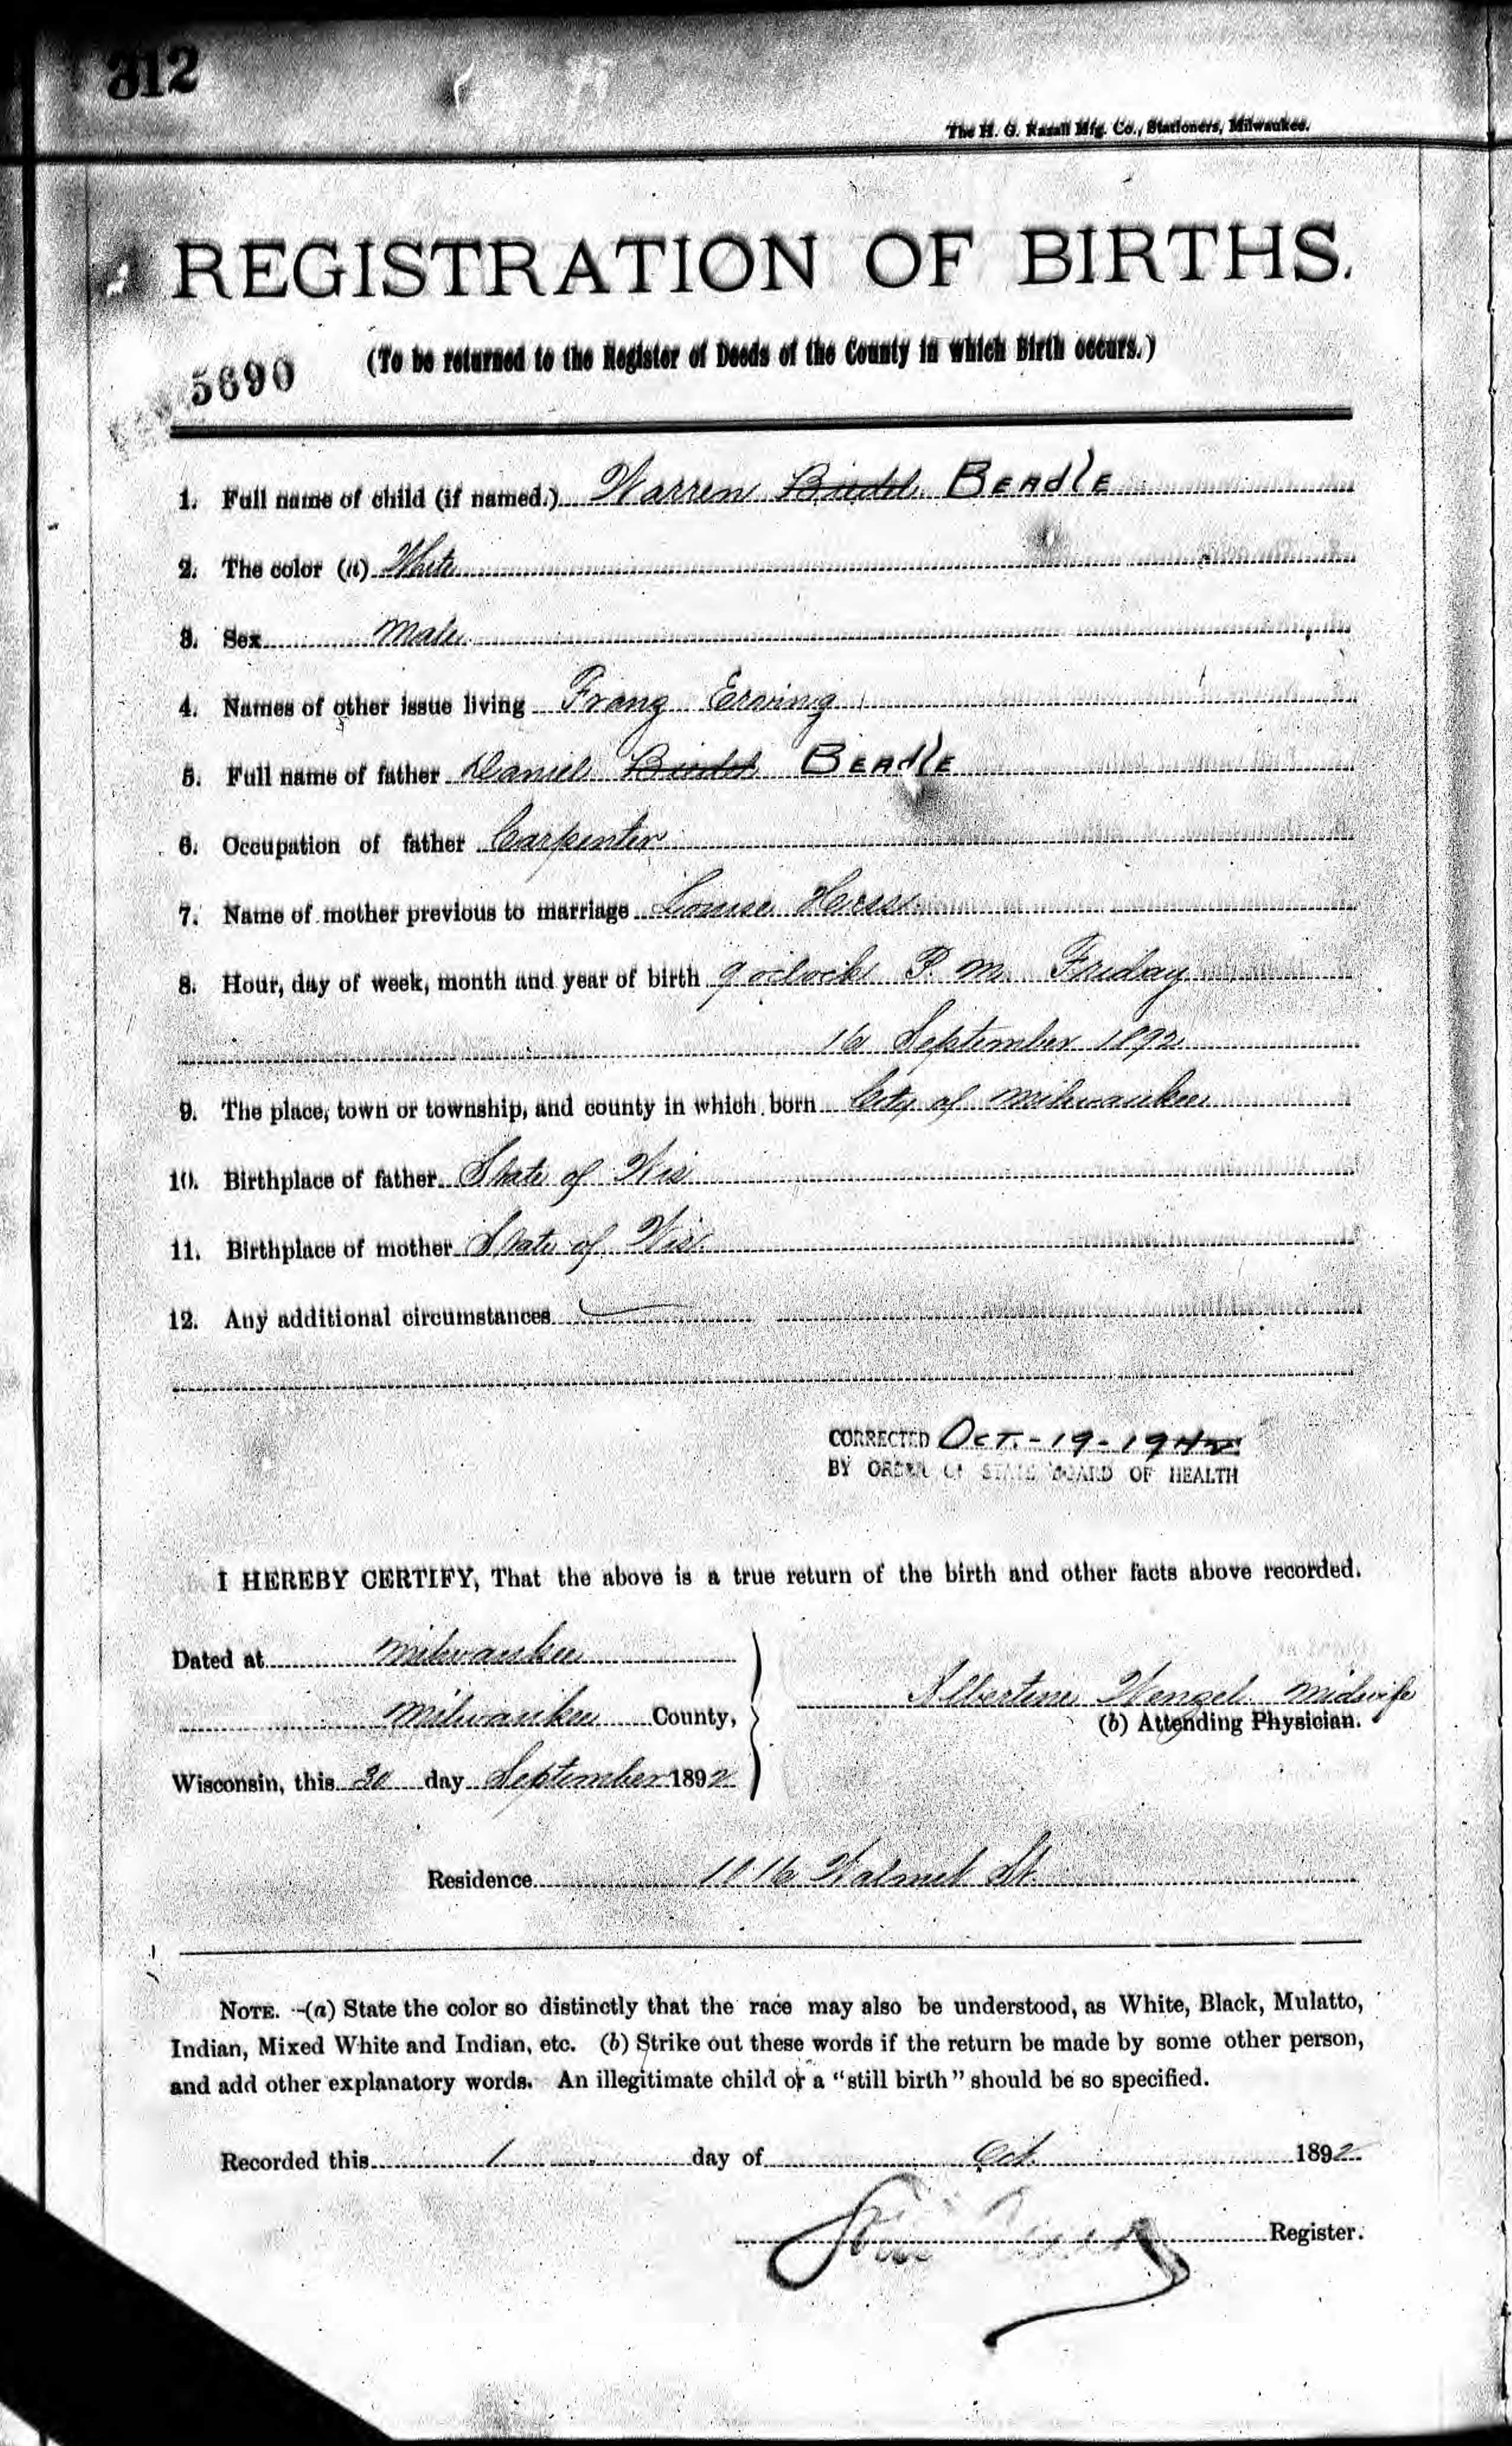 312
The H. G. Razall Mfg. Co., Stationers, Milwaukee.
REGISTRATION OF BIRTHS.
(To be returned to the Register of Deeds of the County in which Birth occurs.)
5690
1. Full name of child (if named.) Warren BEAdlE
2. The color (a) White
3. Sex Male
4. Names of other issue living Franz Erwing
5. Full name of father Daniel BEAdlE
6. Occupation of father Carpenter
7. Name of mother previous to marriage Louise
8. Hour, day of week, month and year of birth 9 oclock P. M. Friday
16 September 1892
9. The place, town or township, and county in which born City of Milwaukee
10. Birthplace of father State of Wis
11. Birthplace of mother State of Wis.
12. Any additional circumstances
CORRECTED OCT.-19-1942
BY ORDER OF STATE BOARD OF HEALTH
I HEREBY CERTIFY, That the above is a true return of the birth and other facts above recorded.
Dated at Milwaukee
Milwaukee County,
Wisconsin, this 30 day September 1892
Albertine Wengel Midwife
(b) Attending Physician.
Residence 1116 Walnut St.
NOTE.--(a) State the color so distinctly that the race may also be understood, as White, Black, Mulatto,
Indian, Mixed White and Indian, etc. (b) Strike out these words if the return be made by some other person,
and add other explanatory words. An illegitimate child or a "still birth" should be so specified.
Recorded this 1 day of Oct. 1892
Register.